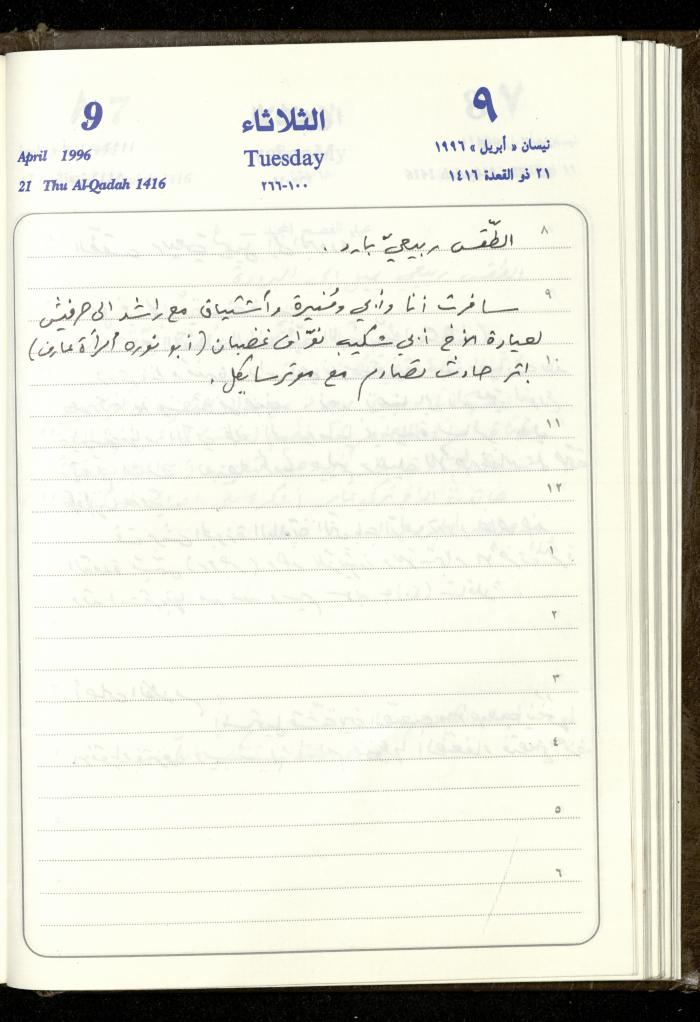 9 الثلاثاء ٩
April 1996 Tuesday نيسان « أبريل » ١٩٩٦
21 Thu Al-Qadah 1416 ٢٦٦-١٠٠ ٢١ ذو القعدة ١٤١٦
٨ الطّقس ربيعيّ بارد .
٩ سافرت أنا وأبي ومُنيرة وأشتياق مع راشد الى حرفيش
لعيادة الأخ أبي شكيب نوّاف غضبان (أبو نوره أمرأة عارف)
١٠ إثر حادث تصادم مع موترسايكل .
١١
١٢
١
٢
٣
٤
٥
٦